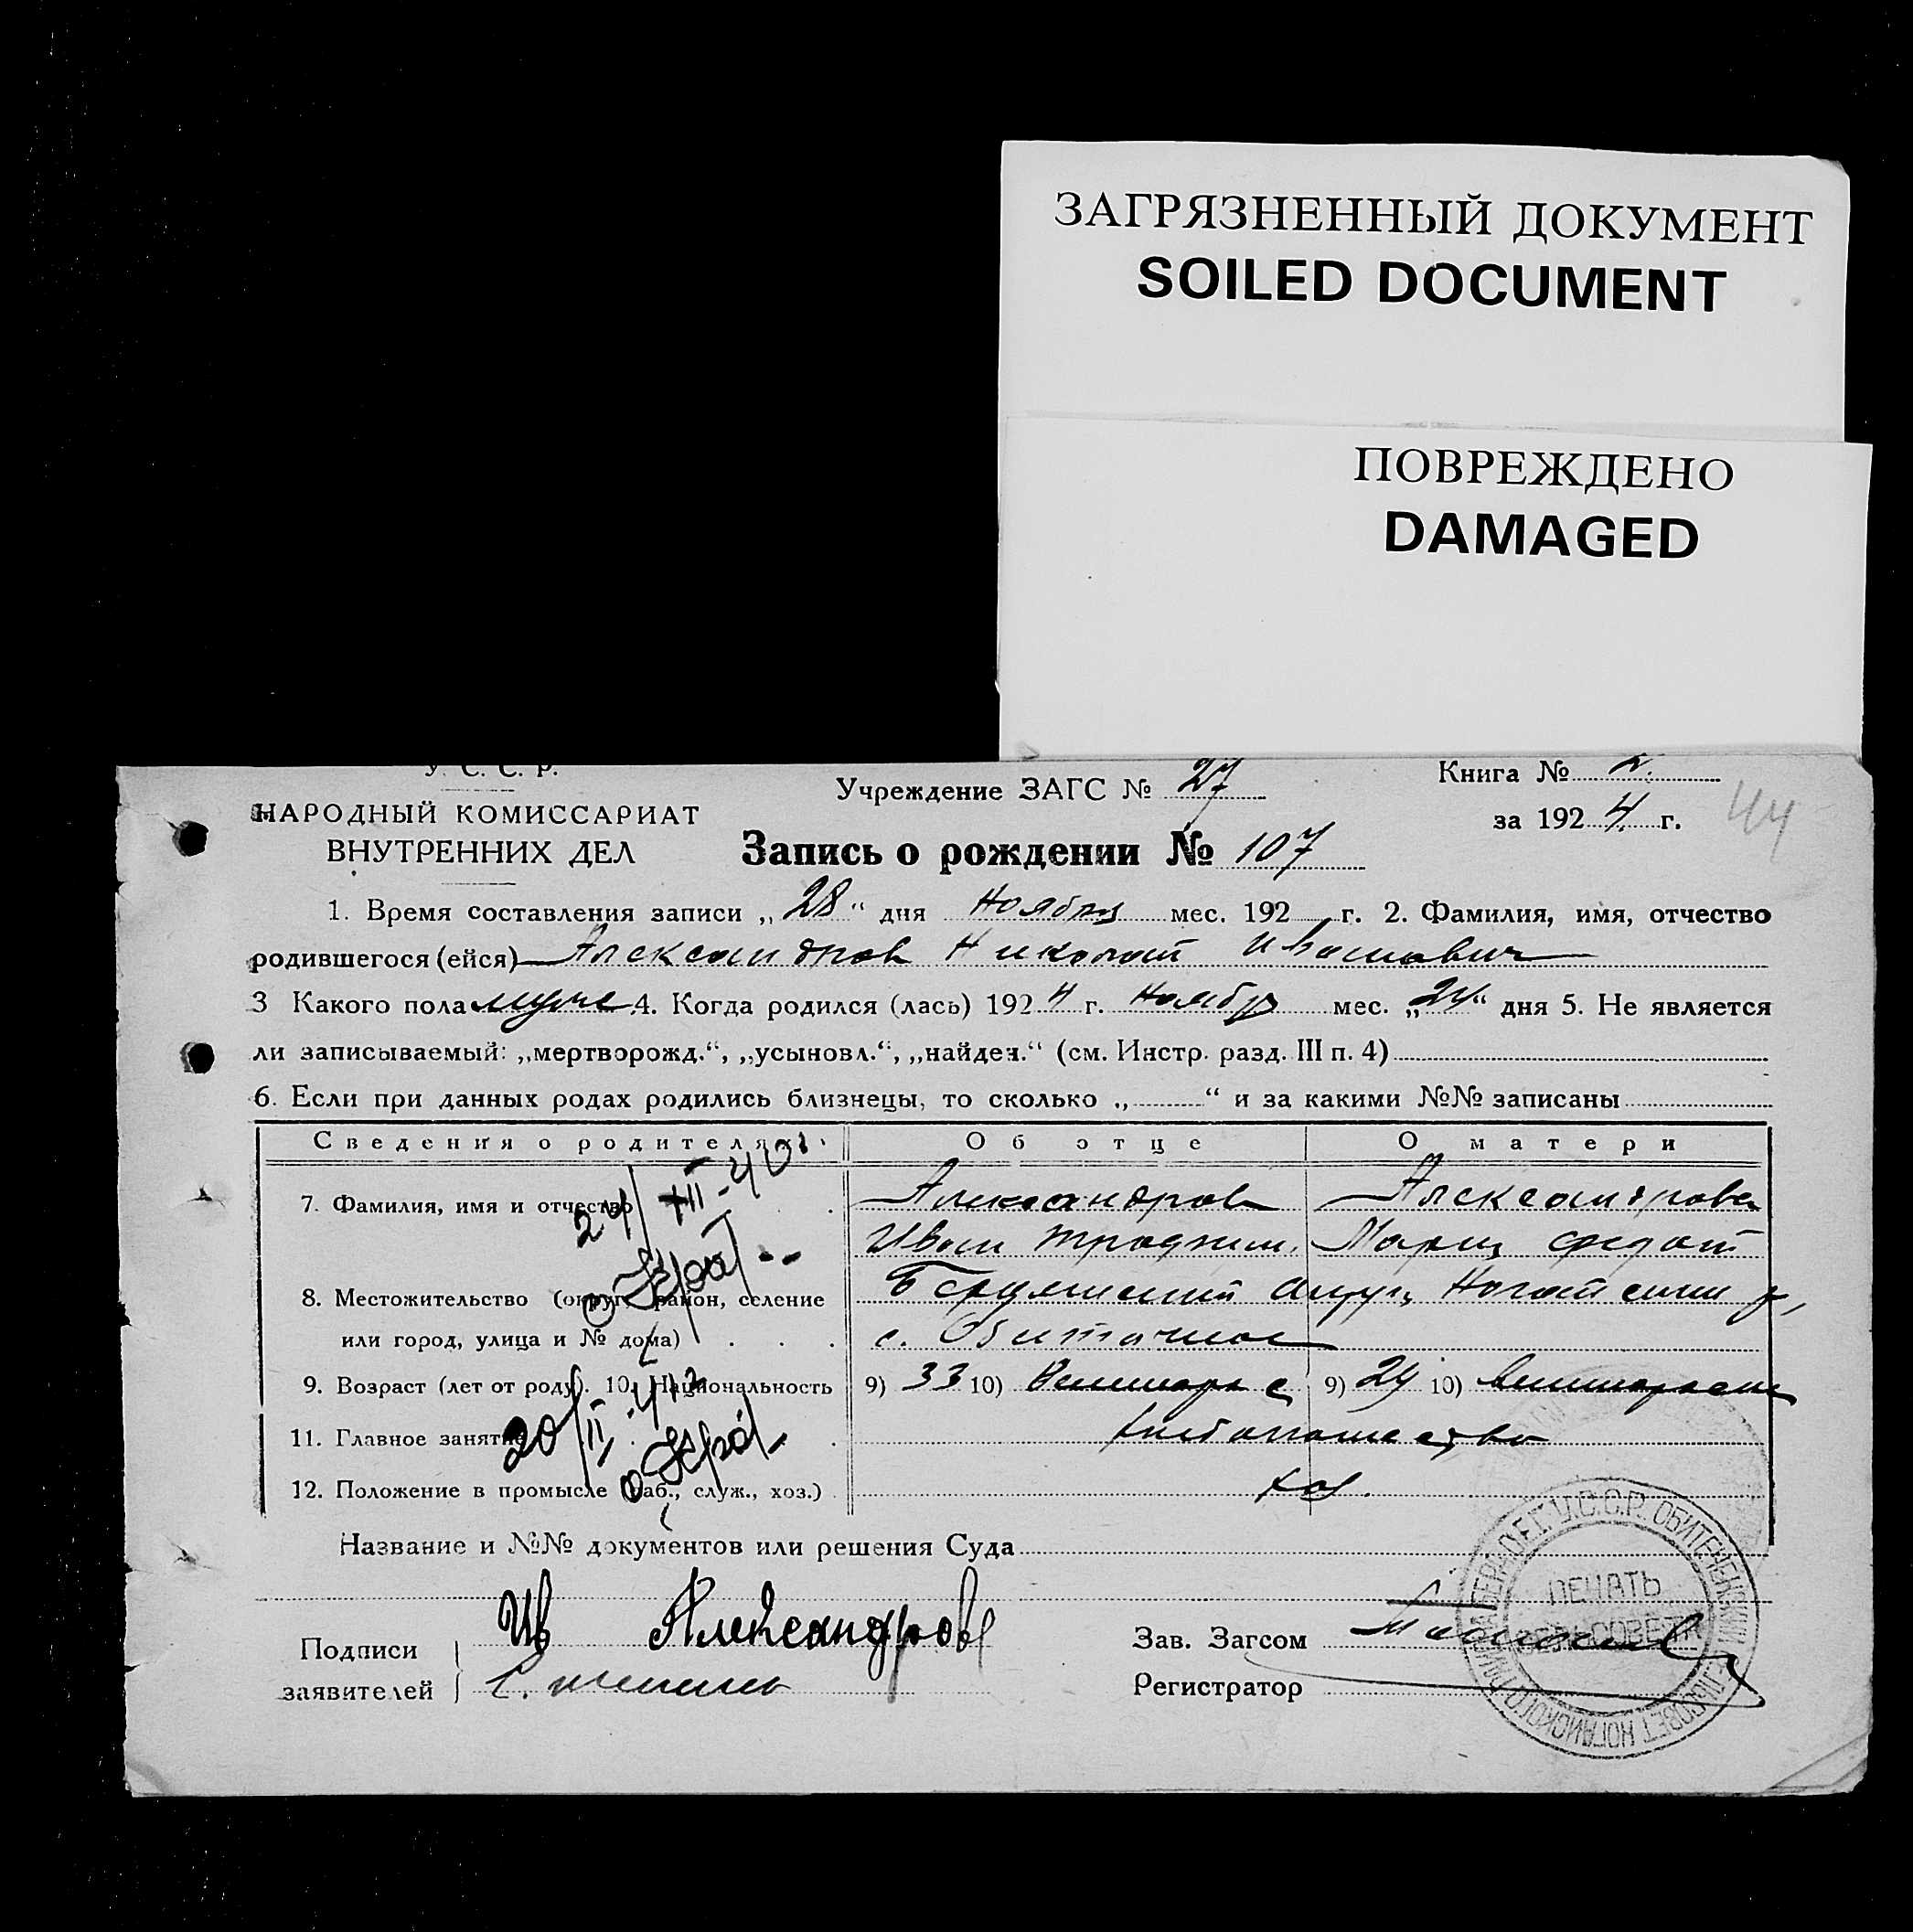 ЗАГРЯЗНЕННЫЙ ДОКУМЕНТ
SOILED DOCUMENT
ПОВРЕЖДЕНО
DAMAGED
У. С. С. Р.
Учреждение ЗАГС № 27
Книга № 2.
НАРОДНЫЙ КОМИССАРИАТ
за 1924 г.
44
ВНУТРЕННИХ ДЕЛ
Запись о рождении № 107
1. Время составления записи „28“ дня Ноября мес. 192 г. 2. Фамилия, имя, отчество
родившегося (ейся) Александров Николай Иванович
3 Какого пола муже 4. Когда родился (лась) 1924 г. Ноября мес. „24“ дня 5. Не является
ли записываемый: „мертворожд.“, „усыновл.“, „найден.“ (см. Инстр. разд. III п. 4)
6. Если при данных родах родились близнецы, то сколько „ “ и за какими №№ записаны
Сведения о родителях
Об отце
О матери
7. Фамилия, имя и отчество
Александров
Александрова
Иван
Мария Федот
24/XII-40
8. Местожительство (округ, район, селение
или город, улица и № дома)
Ногайский р,
с. Обиточное
9. Возраст (лет от роду). 10. Национальность
9) 33 10)
9) 24 10)
11. Главное занятие
хлебопашество
20/II-41
12. Положение в промысле (раб., служ., хоз.)
хоз.
Название и №№ документов или решения Суда
Подписи
заявителей
Ив Александров
Зав. Загсом
Регистратор
У.С.С.Р. ОБИТЕЧЕНСКИЙ СЕЛЬСОВЕТ НОГАЙСКОГО
ПЕЧАТЬ
СЕЛЬСОВЕТА